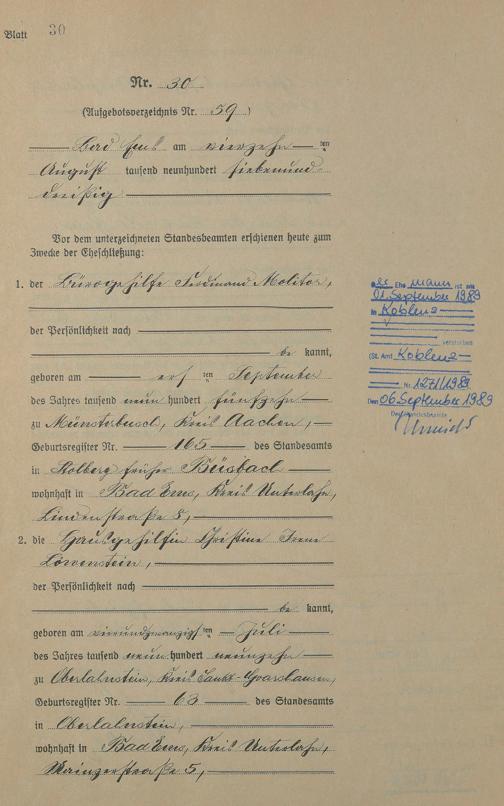 Blatt 30
Nr. 30
(Aufgebotsverzeichnis Nr. 59)
Bad Ems am vierzehn ten
August tausend neunhundert siebenund
dreißig
Vor dem unterzeichneten Standesbeamten erschienen heute zum
Zwecke der Eheschließung:
1. der Bürogehilfe Ferdinand Molitor,
der Persönlichkeit nach
be kannt,
geboren am ersten September
des Jahres tausend neun hundert fünfzehn
zu Münsterbusch, Kreis Aachen,
Geburtsregister Nr. 165 des Standesamts
in Stolberg früher Büsbach
wohnhaft in Bad Ems, Kreis Unterlahn,
Lindenstraße 8,
2. die Hausgehilfin Christine Irene
Löwenstein,
der Persönlichkeit nach
be kannt,
geboren am vierundzwanzigsten Juli
des Jahres tausend neun hundert neunzehn
zu Oberlahnstein, Kreis Sankt Goarshausen,
Geburtsregister Nr. 63 des Standesamts
in Oberlahnstein,
wohnhaft in Bad Ems, Kreis Unterlahn,
Mainzerstraße 5,
Ehemann ist am
01. September 1989
in Koblenz
verstorben
(St. Amt Koblenz
Nr. 1271/1989
Den 06. September 1989
Der Standesbeamte